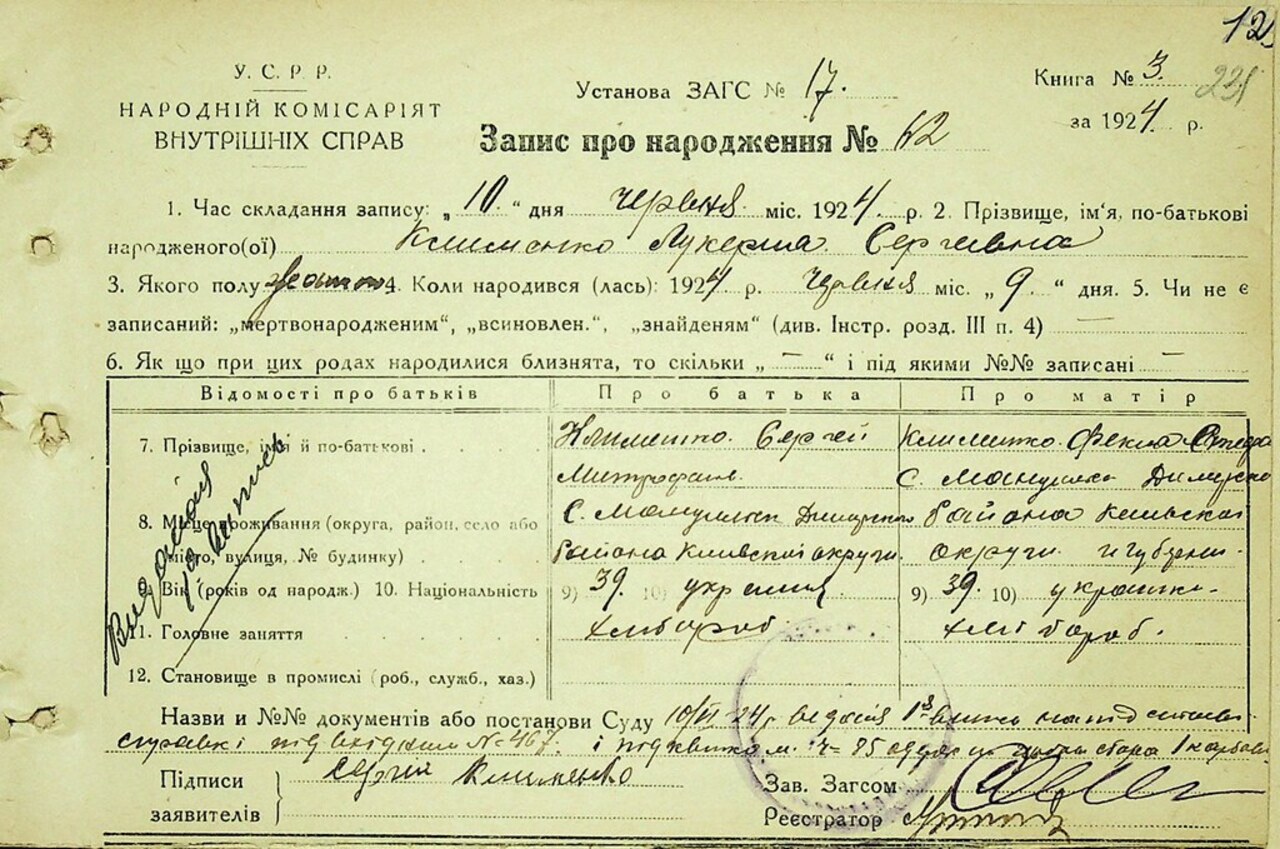 12
У. С. Р. Р.
НАРОДНІЙ КОМІСАРІЯТ
ВНУТРІШНІХ СПРАВ
Установа ЗАГС № 17.
Книга № 3.
231
за 1924. р.
Запис про народження № 62
1. Час складання запису: „10.“ дня червня міс. 1924. р. 2. Прізвище, ім'я, по-батькові
народженого(ої) Клименко Лукерия Сергеивна
3. Якого полу 4. Коли народився (лась): 1924 р. червня міс. „9.“ дня. 5. Чи не є
записаний: „мертвонародженим“, „всиновлен.“, „знайденям“ (див. Інстр. розд. III п. 4) —
6. Як що при цих родах народилися близнята, то скільки „—“ і під якими №№ записані —
Відомості про батьків Про батька Про матір
7. Прізвище, ім'я й по-батькові Клименко Сергей Клименко Фекла
Митрофан.
8. Місце проживання (округа, район, село або
місто, вулиця, № будинку)
С. Дымирского района Киевской
района Киевской округи. округи и губерни.
9. Вік (років од народж.) 10. Національність 9) 39. 10) украинец 9) 39. 10) украинка
11. Головне заняття хлибороб хлибороб.
12. Становище в промислі (роб., служб., хаз.)
Назви и №№ документів або постанови Суду 10/VI 24 р. видання на підставі
справки під вхідним № 467. і під квитком. ч= 85
Підписи
заявителів
Сергий Клименко
Зав. Загсом
Реєстратор